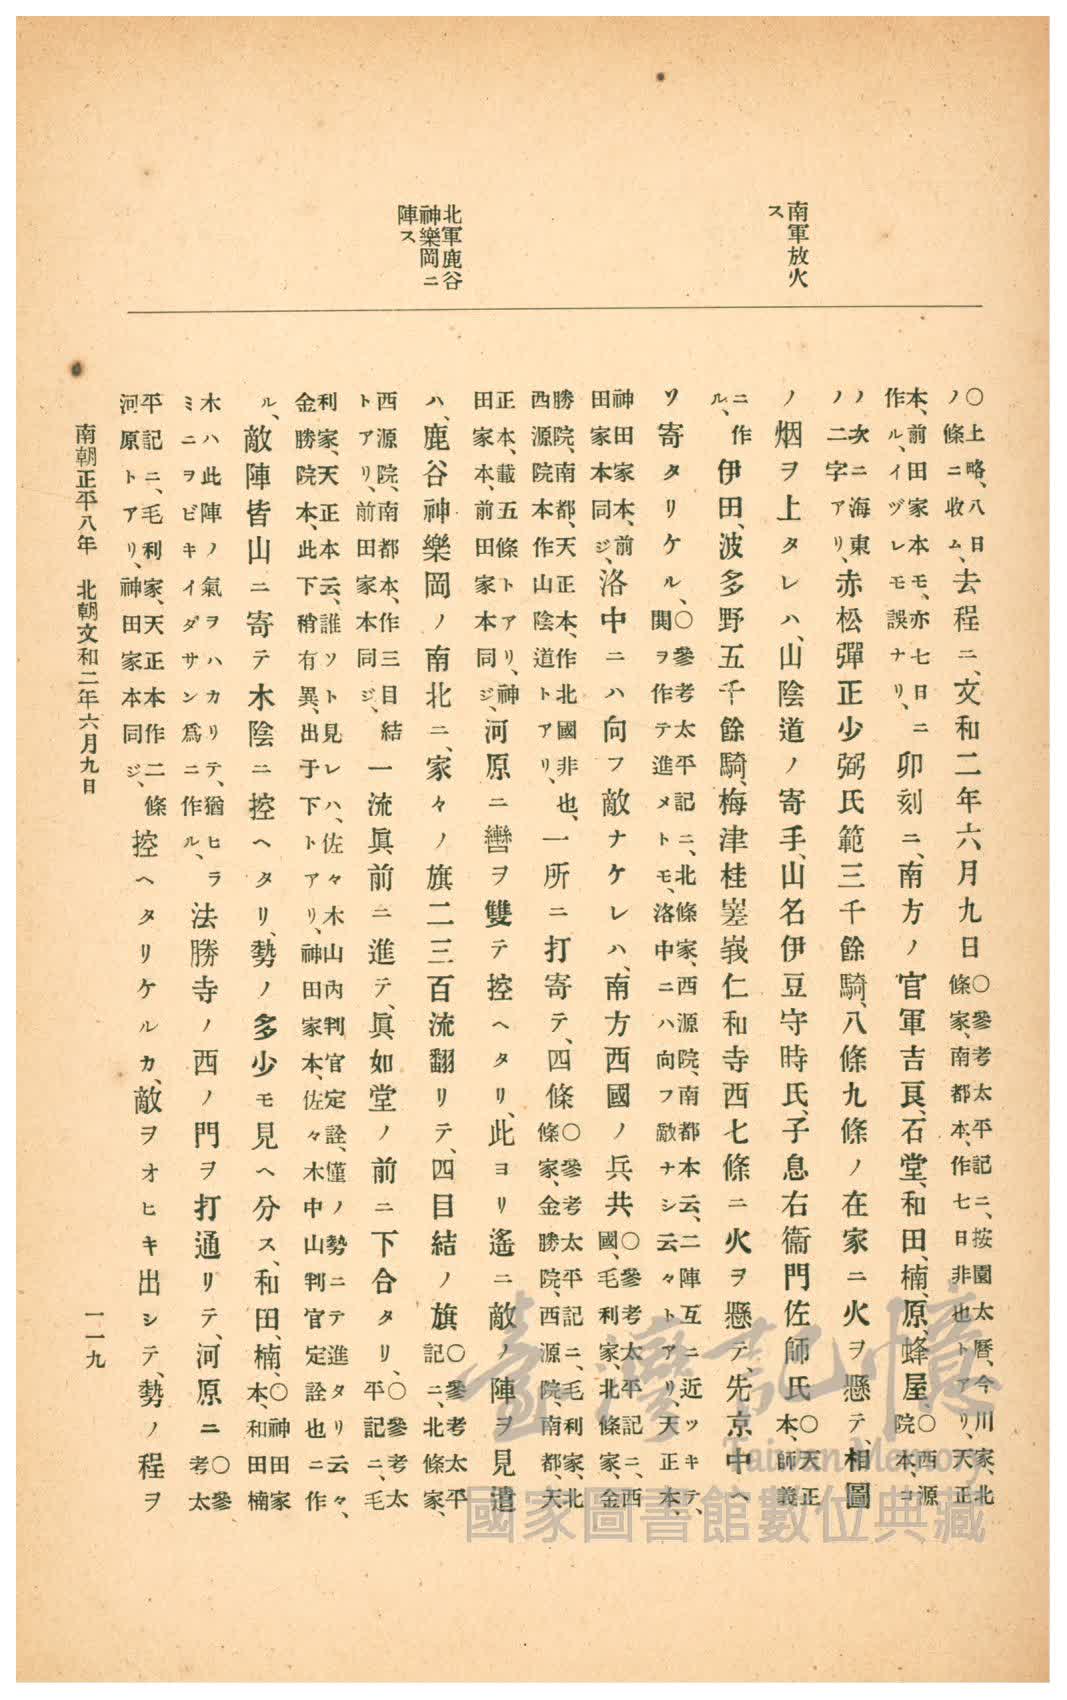 南軍放火
ス
北軍鹿谷
神樂岡ニ
陣ス
○上略、八日
ノ條ニ收ム、
去程ニ、文和二年六月九日
○參考太平記ニ、按園太曆、今川家、北
條家、南都本、作七日非也トアリ、天正
本、前田家本モ、亦七日ニ
作ル、イヅレモ誤ナリ、
卯刻ニ、南方ノ官軍吉良、石堂、和田、楠、原、蜂屋、
○西源
院本、コ
ノ次ニ海東
ノ二字アリ、
赤松彈正少弼氏範三千餘騎、八條九條ノ在家ニ火ヲ懸テ、相圖
ノ烟ヲ上タレハ、山陰道ノ寄手、山名伊豆守時氏、子息右衞門佐師氏
○天正
本、師義
ニ作
ル、
伊田、波多野五千餘騎、梅津桂嵳峩仁和寺西七條ニ火ヲ懸テ、先京中ヘ
ソ寄タリケル、
○參考太平記ニ、北條家、西源院、南都本云、二陣互ニ近ツキテ、
鬨ヲ作テ進メトモ、洛中ニハ向フ敵ナシ云々トアリ、天正本、
神田家本、前
田家本同ジ、
洛中ニハ向フ敵ナケレハ、南方西國ノ兵共
○參考太平記ニ、西
國、毛利家、北條家、金
勝院、南都、天正本、作北國非也、
西源院本作山陰道トアリ、
一所ニ打寄テ、四條
○參考太平記ニ、毛利家、北
條家、金勝院、西源院、南都、天
正本、載五條トアリ、神
田家本、前田家本同ジ、
河原ニ轡ヲ雙テ控ヘタリ、此ヨリ遙ニ敵ノ陣ヲ見遣
ハ、鹿谷神樂岡ノ南北ニ、家々ノ旗二三百流翻リテ、四目結ノ旗
○參考太平
記ニ、北條家、
西源院、南都本、作三目結
トアリ、前田家本同ジ、
一流眞前ニ進テ、眞如堂ノ前ニ下合タリ、
○參考太
平記ニ、毛
利家、天正本云、誰ソト見レハ、佐々木山內判官定詮、僅ノ勢ニテ進タリ云々、
金勝院本、此下稍有異、出于下トアリ、神田家本、佐々木中山判官定詮也ニ作
ル、
敵陣皆山ニ寄テ木陰ニ控ヘタリ、勢ノ多少モ見ヘ分ス、和田、楠、
○神田家
本、和田楠
木ハ此陣ノ氣ヲハカリテ、猶ヒラ
ミニヲビキイダサン爲ニ作ル、
法勝寺ノ西ノ門ヲ打通リテ、河原ニ
○參
考太
平記ニ、毛利家、天正本作二條
河原トアリ、神田家本同ジ、
控ヘタリケルカ、敵ヲオヒキ出シテ、勢ノ程ヲ
南朝正平八年 北朝文和二年六月九日
一一九
臺灣記憶
Taiwan Memory
國家圖書館數位典藏